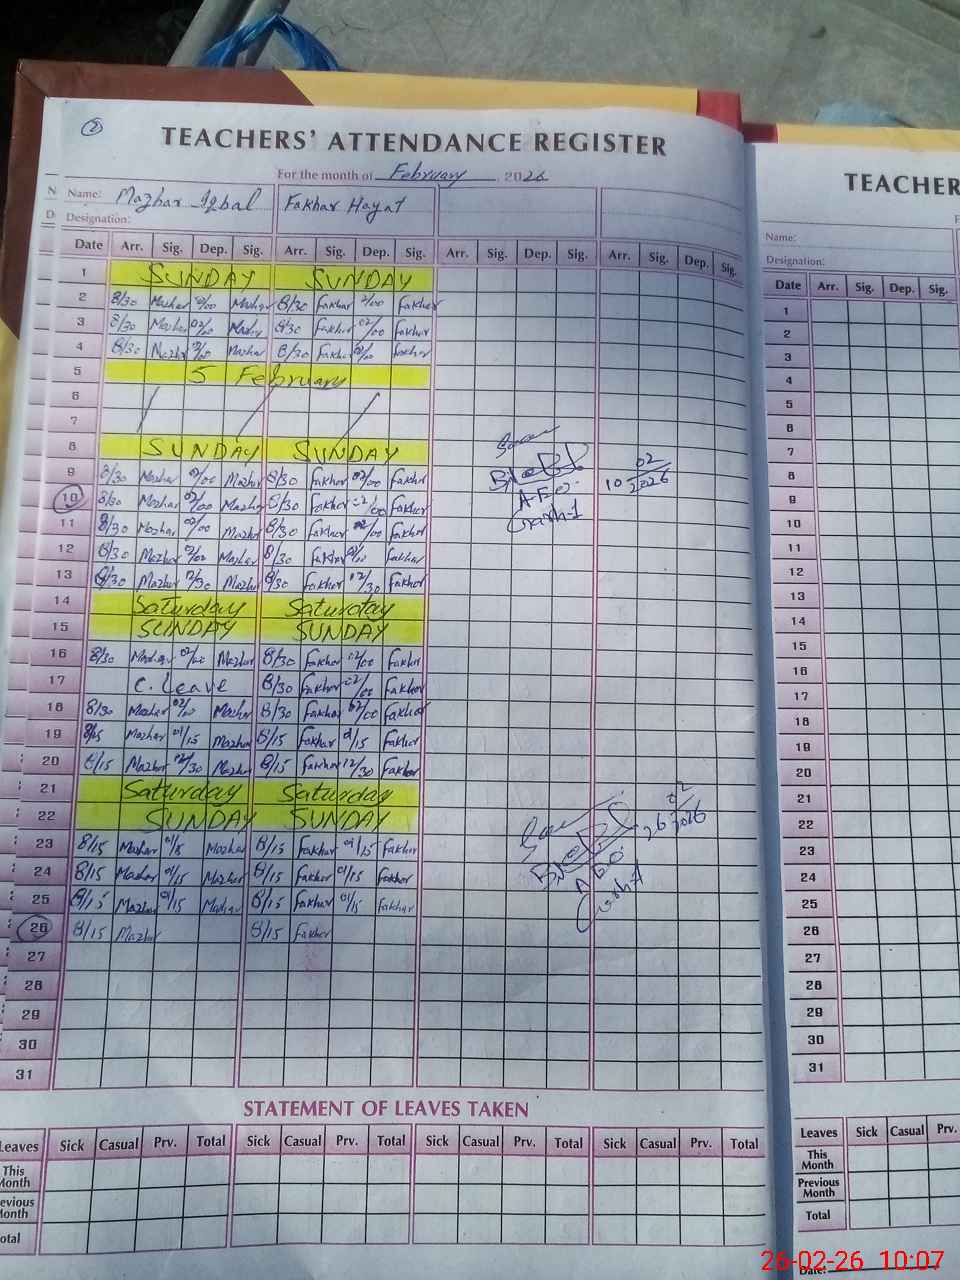 2
TEACHERS' ATTENDANCE REGISTER
For the month of February, 2026
Name: Mazhar Iqbal Fakhar Hayat
Designation:
Date Arr. Sig. Dep. Sig. Arr. Sig. Dep. Sig. Arr. Sig. Dep. Sig. Arr. Sig. Dep. Sig.
1 SUNDAY SUNDAY
2 8/30 Mazhar 02/00 Mazhar 8/30 Fakhar 2/00 Fakhar
3 8/30 Mazhar 02/00 Mazhar 8/30 Fakhar 02/00 Fakhar
4 8/30 Mazhar 02/00 Mazhar 8/30 Fakhar 02/00 Fakhar
5 5 February
6
7
8 SUNDAY SUNDAY
9 8/30 Mazhar 02/00 Mazhar 8/30 Fakhar 02/00 Fakhar
10 8/30 Mazhar 02/00 Mazhar 8/30 Fakhar 02/00 Fakhar
11 8/30 Mazhar 02/00 Mazhar 8/30 Fakhar 02/00 Fakhar
12 8/30 Mazhar 02/00 Mazhar 8/30 Fakhar 02/00 Fakhar
13 8/30 Mazhar 12/30 Mazhar 8/30 Fakhar 12/30 Fakhar
14 Saturday Saturday
15 SUNDAY SUNDAY
16 8/30 Mazhar 02/00 Mazhar 8/30 Fakhar 02/00 Fakhar
17 C. Leave 8/30 Fakhar 02/00 Fakhar
18 8/30 Mazhar 02/00 Mazhar 8/30 Fakhar 02/00 Fakhar
19 8/15 Mazhar 01/15 Mazhar 8/15 Fakhar 01/15 Fakhar
20 8/15 Mazhar 12/30 Mazhar 8/15 Fakhar 12/30 Fakhar
21 Saturday Saturday
22 SUNDAY SUNDAY
23 8/15 Mazhar 01/15 Mazhar 8/15 Fakhar 01/15 Fakhar
24 8/15 Mazhar 01/15 Mazhar 8/15 Fakhar 01/15 Fakhar
25 8/15 Mazhar 01/15 Mazhar 8/15 Fakhar 01/15 Fakhar
26 8/15 Mazhar 8/15 Fakhar
27
28
29
30
31
A.E.O.
10 02/2026
26 02/2026
STATEMENT OF LEAVES TAKEN
Leaves Sick Casual Prv. Total Sick Casual Prv. Total Sick Casual Prv. Total Sick Casual Prv. Total
This Month
Previous Month
Total
TEACHER
Name:
Designation:
Date Arr. Sig. Dep. Sig.
1
2
3
4
5
6
7
8
9
10
11
12
13
14
15
16
17
18
19
20
21
22
23
24
25
26
27
28
29
30
31
Leaves Sick Casual Prv.
This Month
Previous Month
Total
Date:
26-02-26 10:07